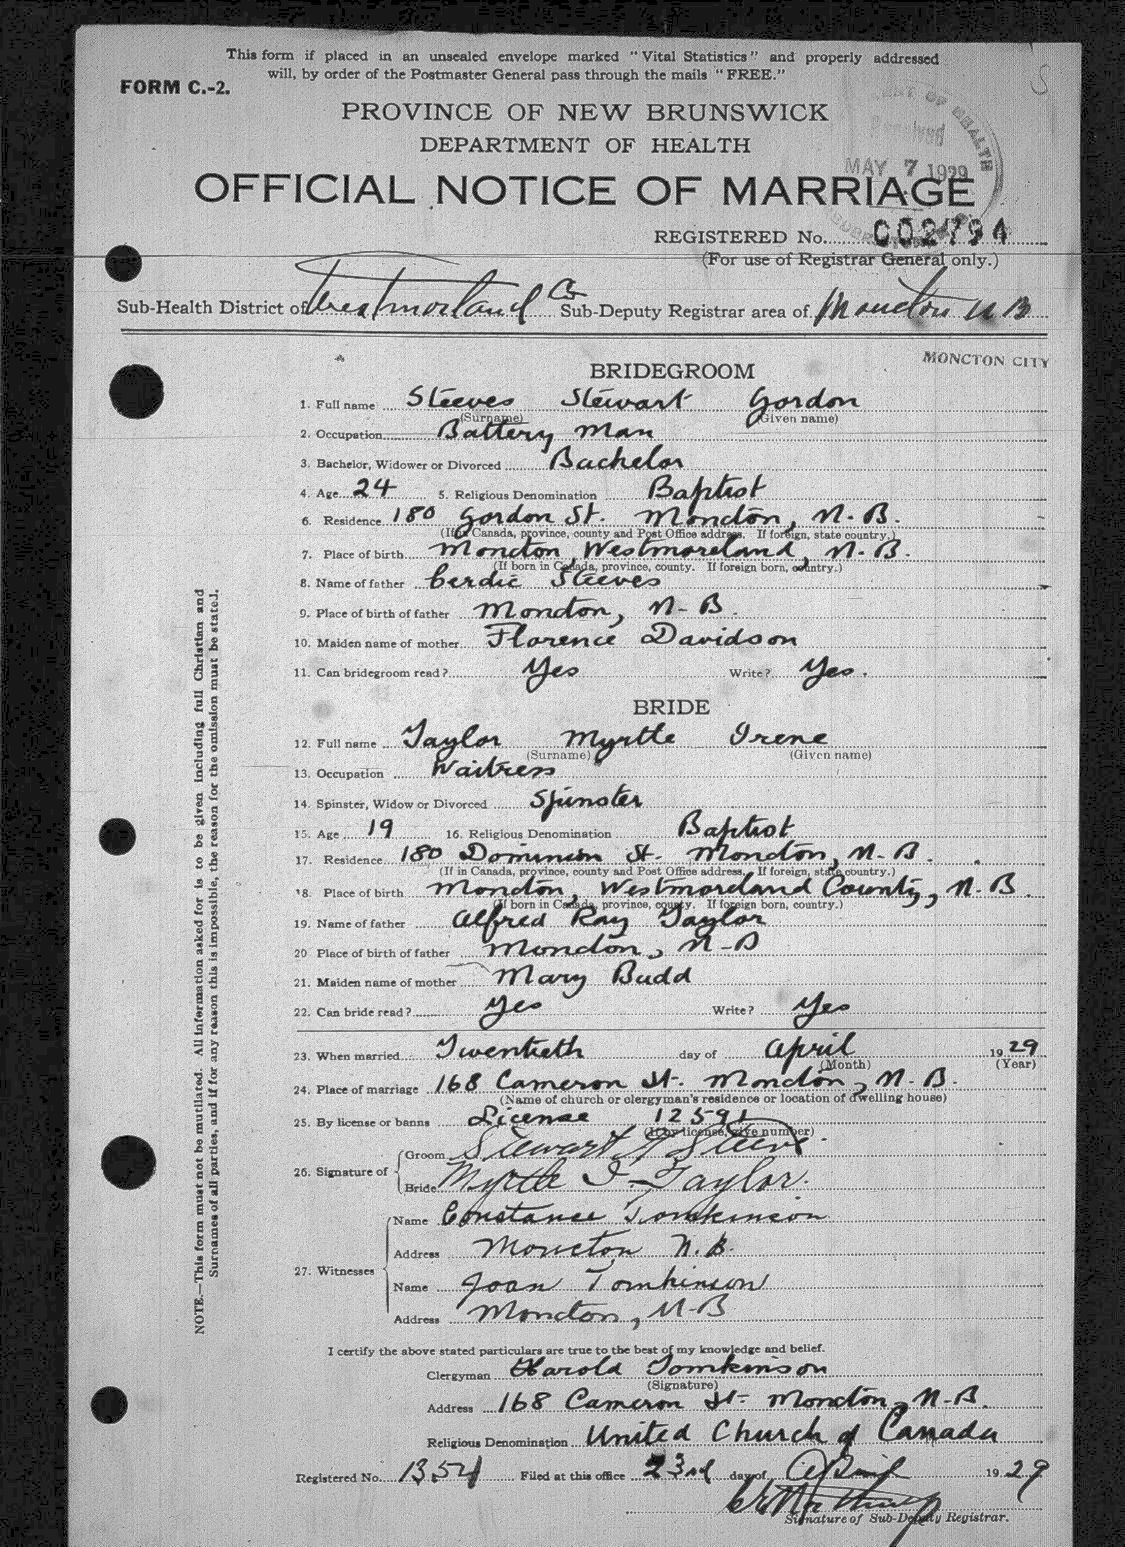 This form if placed in an unsealed envelope marked "Vital Statistics" and properly addressed
will, by order of the Postmaster General pass through the mails "FREE."
FORM C.-2.
PROVINCE OF NEW BRUNSWICK
DEPARTMENT OF HEALTH
Received
MAY 7 1929
OFFICIAL NOTICE OF MARRIAGE
REGISTERED No. 002794
(For use of Registrar General only.)
Sub-Health District of Westmorland Co Sub-Deputy Registrar area of Moncton N B
MONCTON CITY
BRIDEGROOM
1. Full name Steeves Stewart Gordon
(Surname) (Given name)
2. Occupation Battery man
3. Bachelor, Widower or Divorced Bachelor
4. Age 24 5. Religious Denomination Baptist
6. Residence 180 Gordon St. Moncton, N.B.
(If in Canada, province, county and Post Office address. If foreign, state country.)
7. Place of birth Moncton, Westmoreland, N.B.
(If born in Canada, province, county. If foreign born, country.)
8. Name of father Cerdic Steeves
9. Place of birth of father Moncton, N-B.
10. Maiden name of mother Florence Davidson
11. Can bridegroom read? Yes Write? Yes.
BRIDE
12. Full name Taylor Myrtle Irene
(Surname) (Given name)
13. Occupation Waitress
14. Spinster, Widow or Divorced Spinster
15. Age 19 16. Religious Denomination Baptist
17. Residence 180 Dominion St. Moncton, N.B.
(If in Canada, province, county and Post Office address. If foreign, state country.)
18. Place of birth Moncton, Westmoreland County, N-B.
(If born in Canada, province, county. If foreign born, country.)
19. Name of father Alfred Ray Taylor
20 Place of birth of father Moncton, N-B
21. Maiden name of mother Mary Budd
22. Can bride read? Yes Write? Yes
23. When married Twentieth day of April 1929
(Month) (Year)
24. Place of marriage 168 Cameron St. Moncton, N.B.
(Name of church or clergyman's residence or location of dwelling house)
25. By license or banns License 12591
(If by license, give number)
26. Signature of Groom Stewart G Steeve
Bride Myrtle I. Taylor.
27. Witnesses Name Constance Tomkinson
Address Moncton N.B.
Name Joan Tomkinson
Address Moncton, N-B
I certify the above stated particulars are true to the best of my knowledge and belief.
Clergyman Harold Tomkinson
(Signature)
Address 168 Cameron St. Moncton, N-B.
Religious Denomination United Church of Canada
Registered No. 1354 Filed at this office 23rd day of April 1929
Signature of Sub-Deputy Registrar.
NOTE.—This form must not be mutilated. All information asked for is to be given including full Christian and
Surnames of all parties, and if for any reason this is impossible, the reason for the omission must be stated.